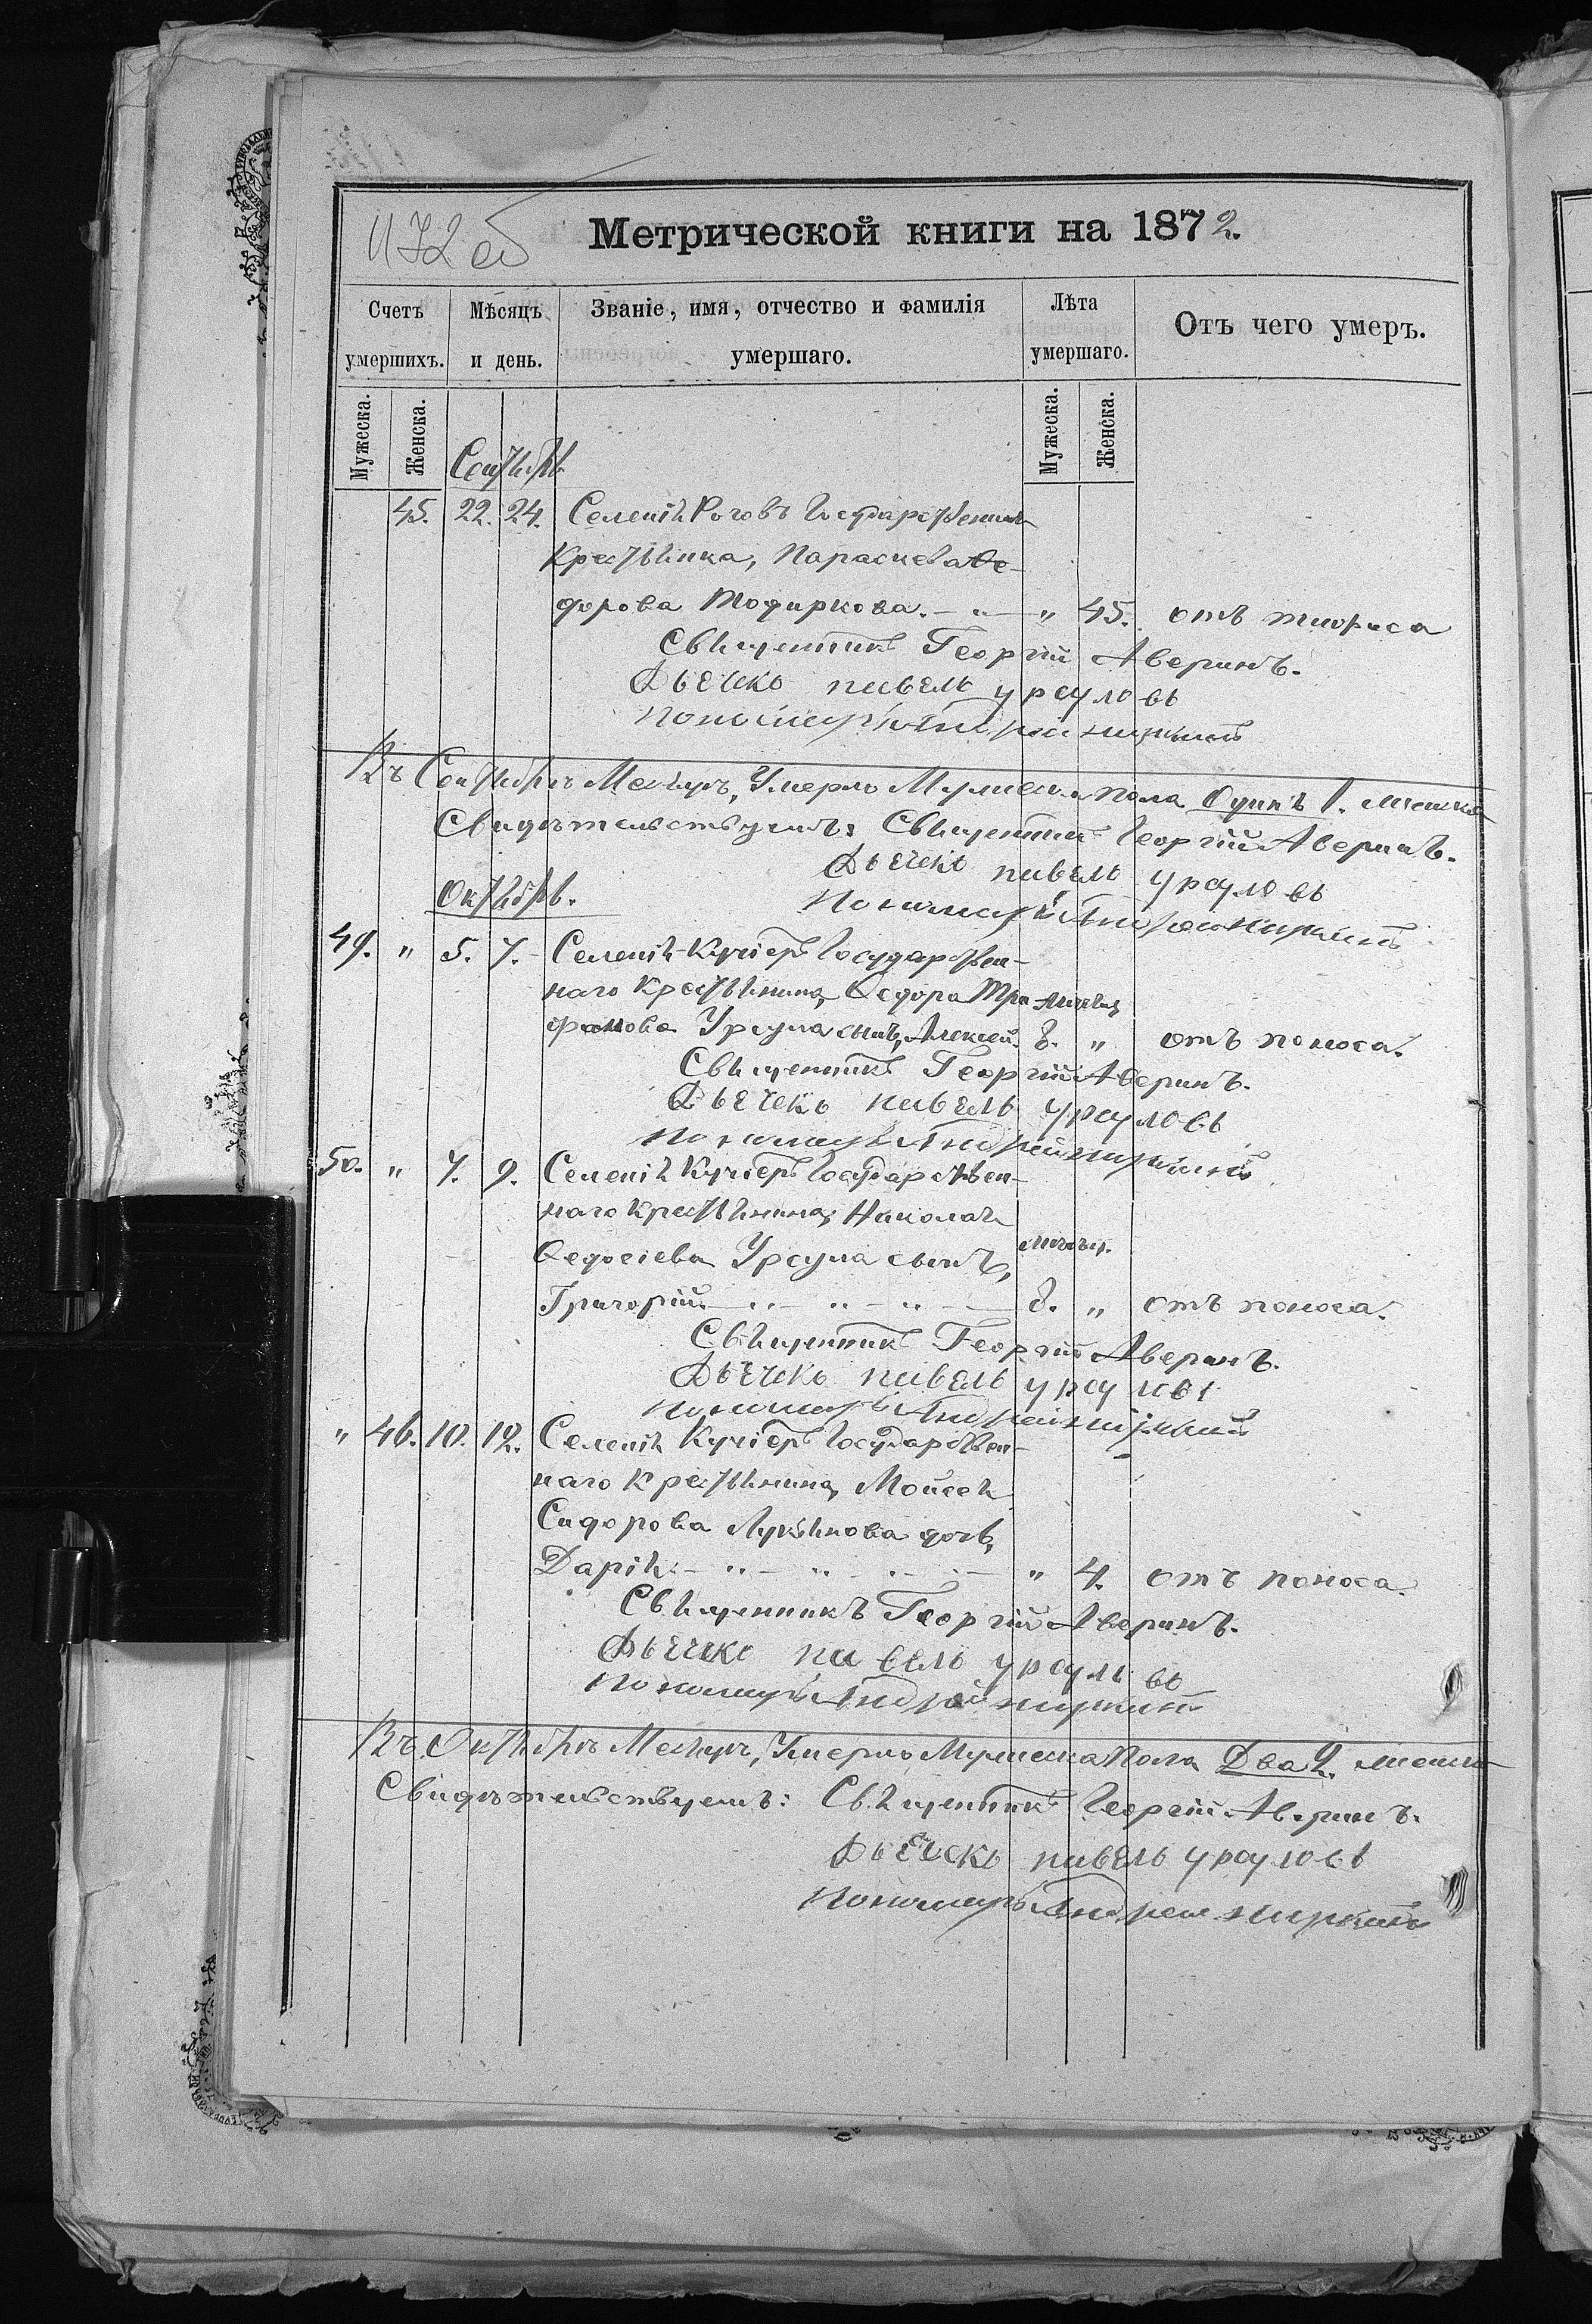 1172 об
Метрической книги на 1872.
Счетъ умершихъ.
Мѣсяцъ и день.
Званіе, имя, отчество и фамилія умершаго.
Лѣта умершаго.
Отъ чего умеръ.
Мужеска.
Женска.
Мужеска.
Женска.
Сентябрь
45. 22. 24. Селенія Роговъ Государственная
Крестьянка, Параскева Ѳе-
дорова Тодиркова. " 45. отъ тиориса
Священникъ Георгій Аверинъ.
Дьячекъ Павелъ Урсуловъ
Пономарь Андрей
Въ Сентябрѣ Месяцѣ, Умерло Мужеска пола Одинъ 1. женска
Свидѣтельствуемъ: Священникъ Георгій Аверинъ.
Дьячекъ Павелъ Урсуловъ
Октябрь.
Пономарь Андрей
49. " 5. 7. Селенія Кучіеръ Государствен-
наго Крестьянина, Ѳедора Три- месяц
фанова Урсула сынъ, Алексей. 8. " отъ поноса.
Священникъ Георгій Аверинъ.
Дьячекъ Павелъ Урсуловъ
Пономарь Андрей
50. " 7. 9. Селенія Кучіеръ Государствен-
наго Крестьянина, Николая
Ѳедосіева Урсула сынъ, месяц.
Григорій. 8. " отъ поноса.
Священникъ Георгій Аверинъ.
Дьячекъ Павелъ Урсуловъ
Пономарь Андрей
" 46. 10. 12. Селенія Кучіеръ Государствен-
наго Крестьянина, Моисея
Сидорова Лукьянова дочь,
Дарія. " 4. отъ поноса.
Священникъ Георгій Аверинъ.
Дьячекъ Павелъ Урсуловъ
Пономарь Андрей
Въ Октябрѣ Месяцѣ, Умерло Мужеска Пола Два 2. женска
Свидѣтельствуемъ: Священникъ Георгій Аверинъ.
Дьячекъ Павелъ Урсуловъ
Пономарь Андрей